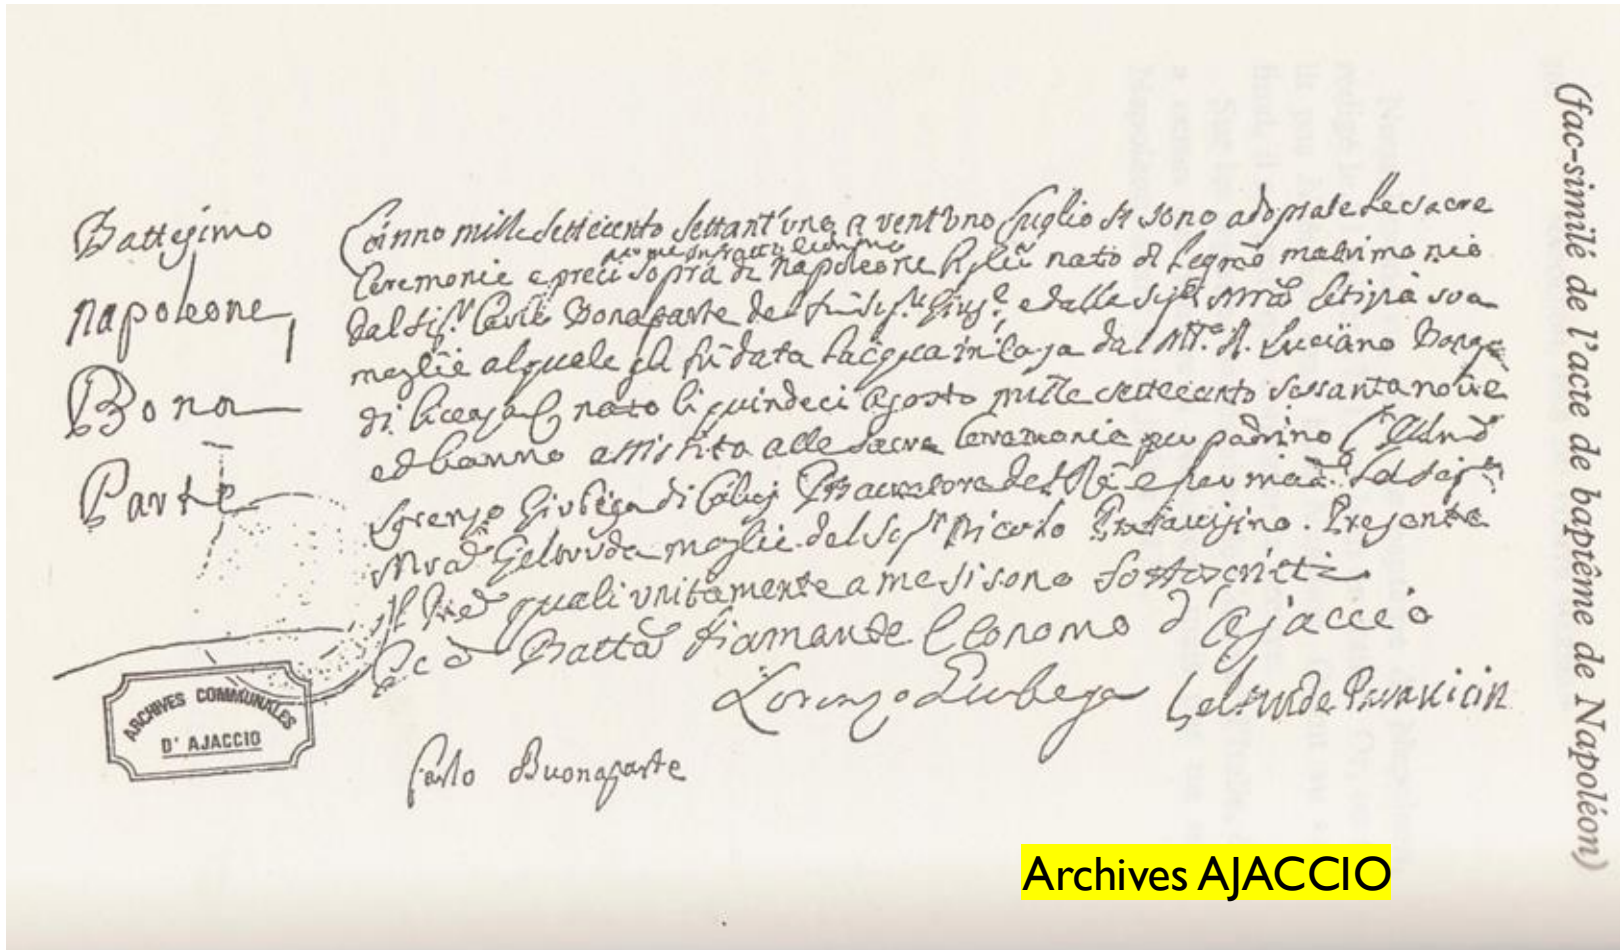 Battesimo
Napoleone
Bona
Parte
L'Anno mille settecento settant'uno a vent'uno Luglio si sono adoprate le sacre
per me infratto Economo
Ceremonie e preci sopra di Napoleone figlio nato di Legmo matrimonio
dal Sigr Carlo Bonaparte del fu Sigr Gius.e e dalla Siga Mra Letizia sua
moglie al quale gli fu data l'acqua in Casa dal M.to R. Luciano Bonap
di licenza nato li quindeci Agosto mille settecento sessanta nove
ed hanno assistito alle sacre Ceremonie per padrino
Lorenzo Giubega di Calvi Procuratore del Re e per mad la Sig
Mra Geltruda moglie del Sigr Nicolo Paravisino. Presente
il Pred quali unitamente a me si sono sottoscritti
Gio Batta Diamante Economo d'Ajaccio
Lorenzo Giubega Geltruda Paravicin
Carlo Buonaparte
ARCHIVES COMMUNALES
D'AJACCIO
(fac-similé de l'acte de baptême de Napoléon)
Archives AJACCIO